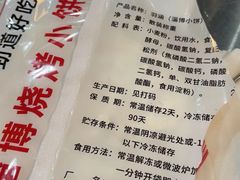 动道好吃
淄博烧烤小饼
品名：
(淄博小饼)
净含量：散装称重
配料：小麦粉，饮用水，食
松剂
碳酸氢钠，碳酸钙，
二氢钙，单，双甘油脂肪
酸酯，食用淀粉)
生产日期：见打码
保质期：常温储存2天，冷冻储存
90天
贮存条件：常温阴凉避光处或-1
以下冷冻储存
食用方法：常温解冻或微波炉加
一分钟开袋即